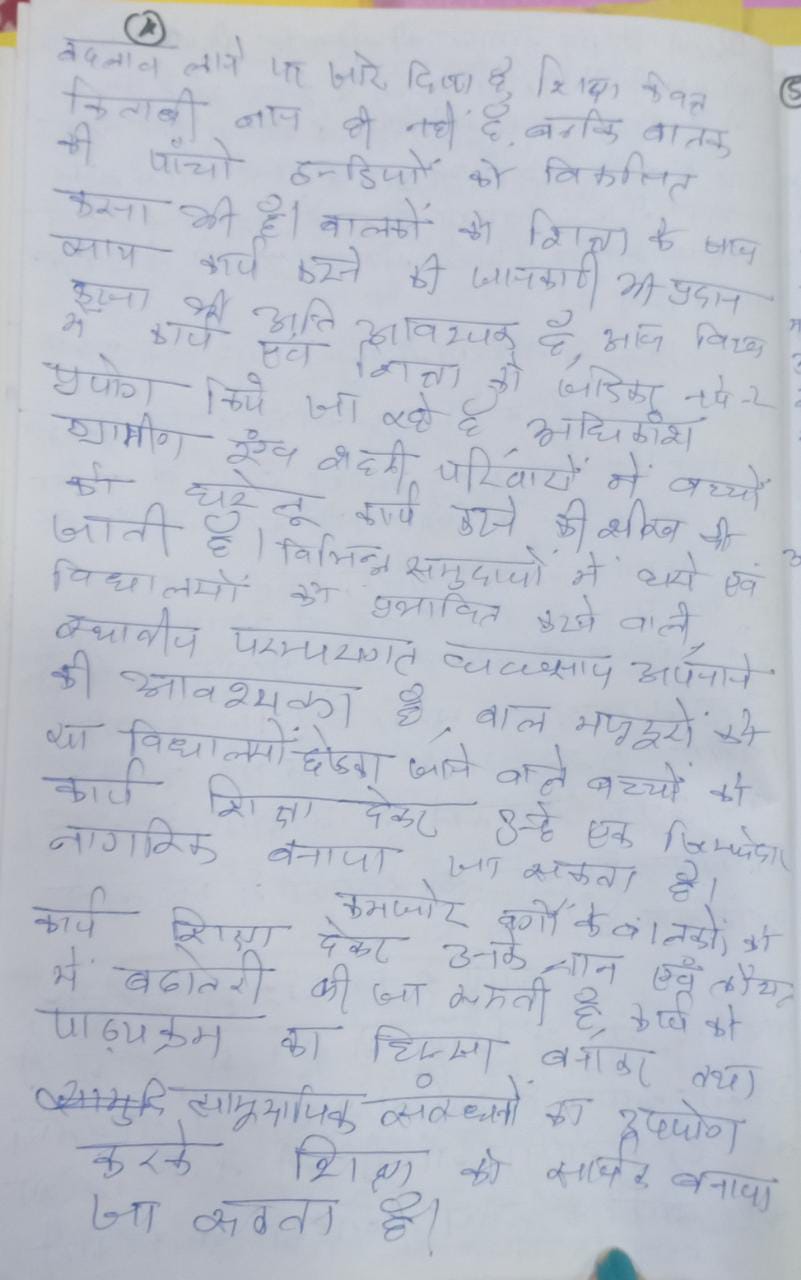 बदलाव लाने पर जोर दिया है, शिक्षा केवल
किताबी ज्ञान ही नहीं है, बल्कि बालक
की पाँचो इन्द्रियों को विकसित
करना भी है। बालकों को शिक्षा के साथ
साथ कार्य करने की जानकारी भी प्रदान
करना भी अति आवश्यक है, आज विश्व
में कार्य एवं शिक्षा को जोडकर नये-२
प्रयोग किये जा रहे है, अधिकांश
ग्रामीण एंव शहरी परिवारों में बच्चों
को घरेलू कार्य करने की सीख दी
जाती है। विभिन्न समुदायों में धर्म एवं
विधालयों को प्रभावित करने वाले,
स्थानीय परम्परागत व्यवसाय अपनाने
की आवश्यका है, बाल मजदूरों को
या विधालयों छोडकर जाने वाले बच्चों को
कार्य शिक्षा देकर उन्हे एक जिम्मेदार
नागरिक बनाया जा सकता है।
कमजोर वर्गों के बालकों को
कार्य शिक्षा देकर उनके ज्ञान एवं कौशल
में बढोतरी की जा सकती है, कार्य को
पाठ्यक्रम का हिस्सा बनाकर तथा
सामुदायिक संसाधनों का उपयोग
करके शिक्षा को सार्थक बनाया
जा सकता है।